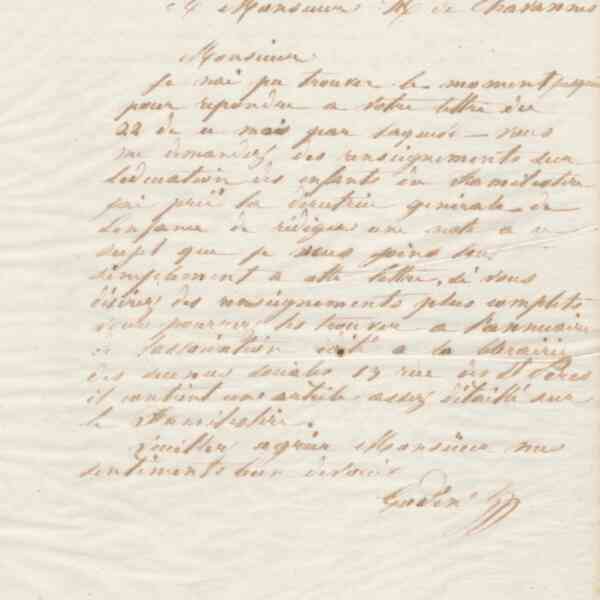 A Monsieur M de Chavannes
Monsieur
Je nai pu trouver le moment
pour repondre a votre lettre du
22 de ce mois par laquelle vous
me demandez des renseignements sur
leducation des enfants du Familistère
jai prié la directrice generale de
Lenfance de rédiger une note a ce
sujet que je vous joins
simplement a cette lettre, si vous
désirez des renseignements plus complets
vous pourrez les trouver a Lannuaire
de Lassociation édité a la librairie
des sciences sociales 13 rue des St Peres
il contient une article assez détaillé sur
le Familistère.
Veuillez agréer Monsieur mes
sentiments bien dévoués
Godin